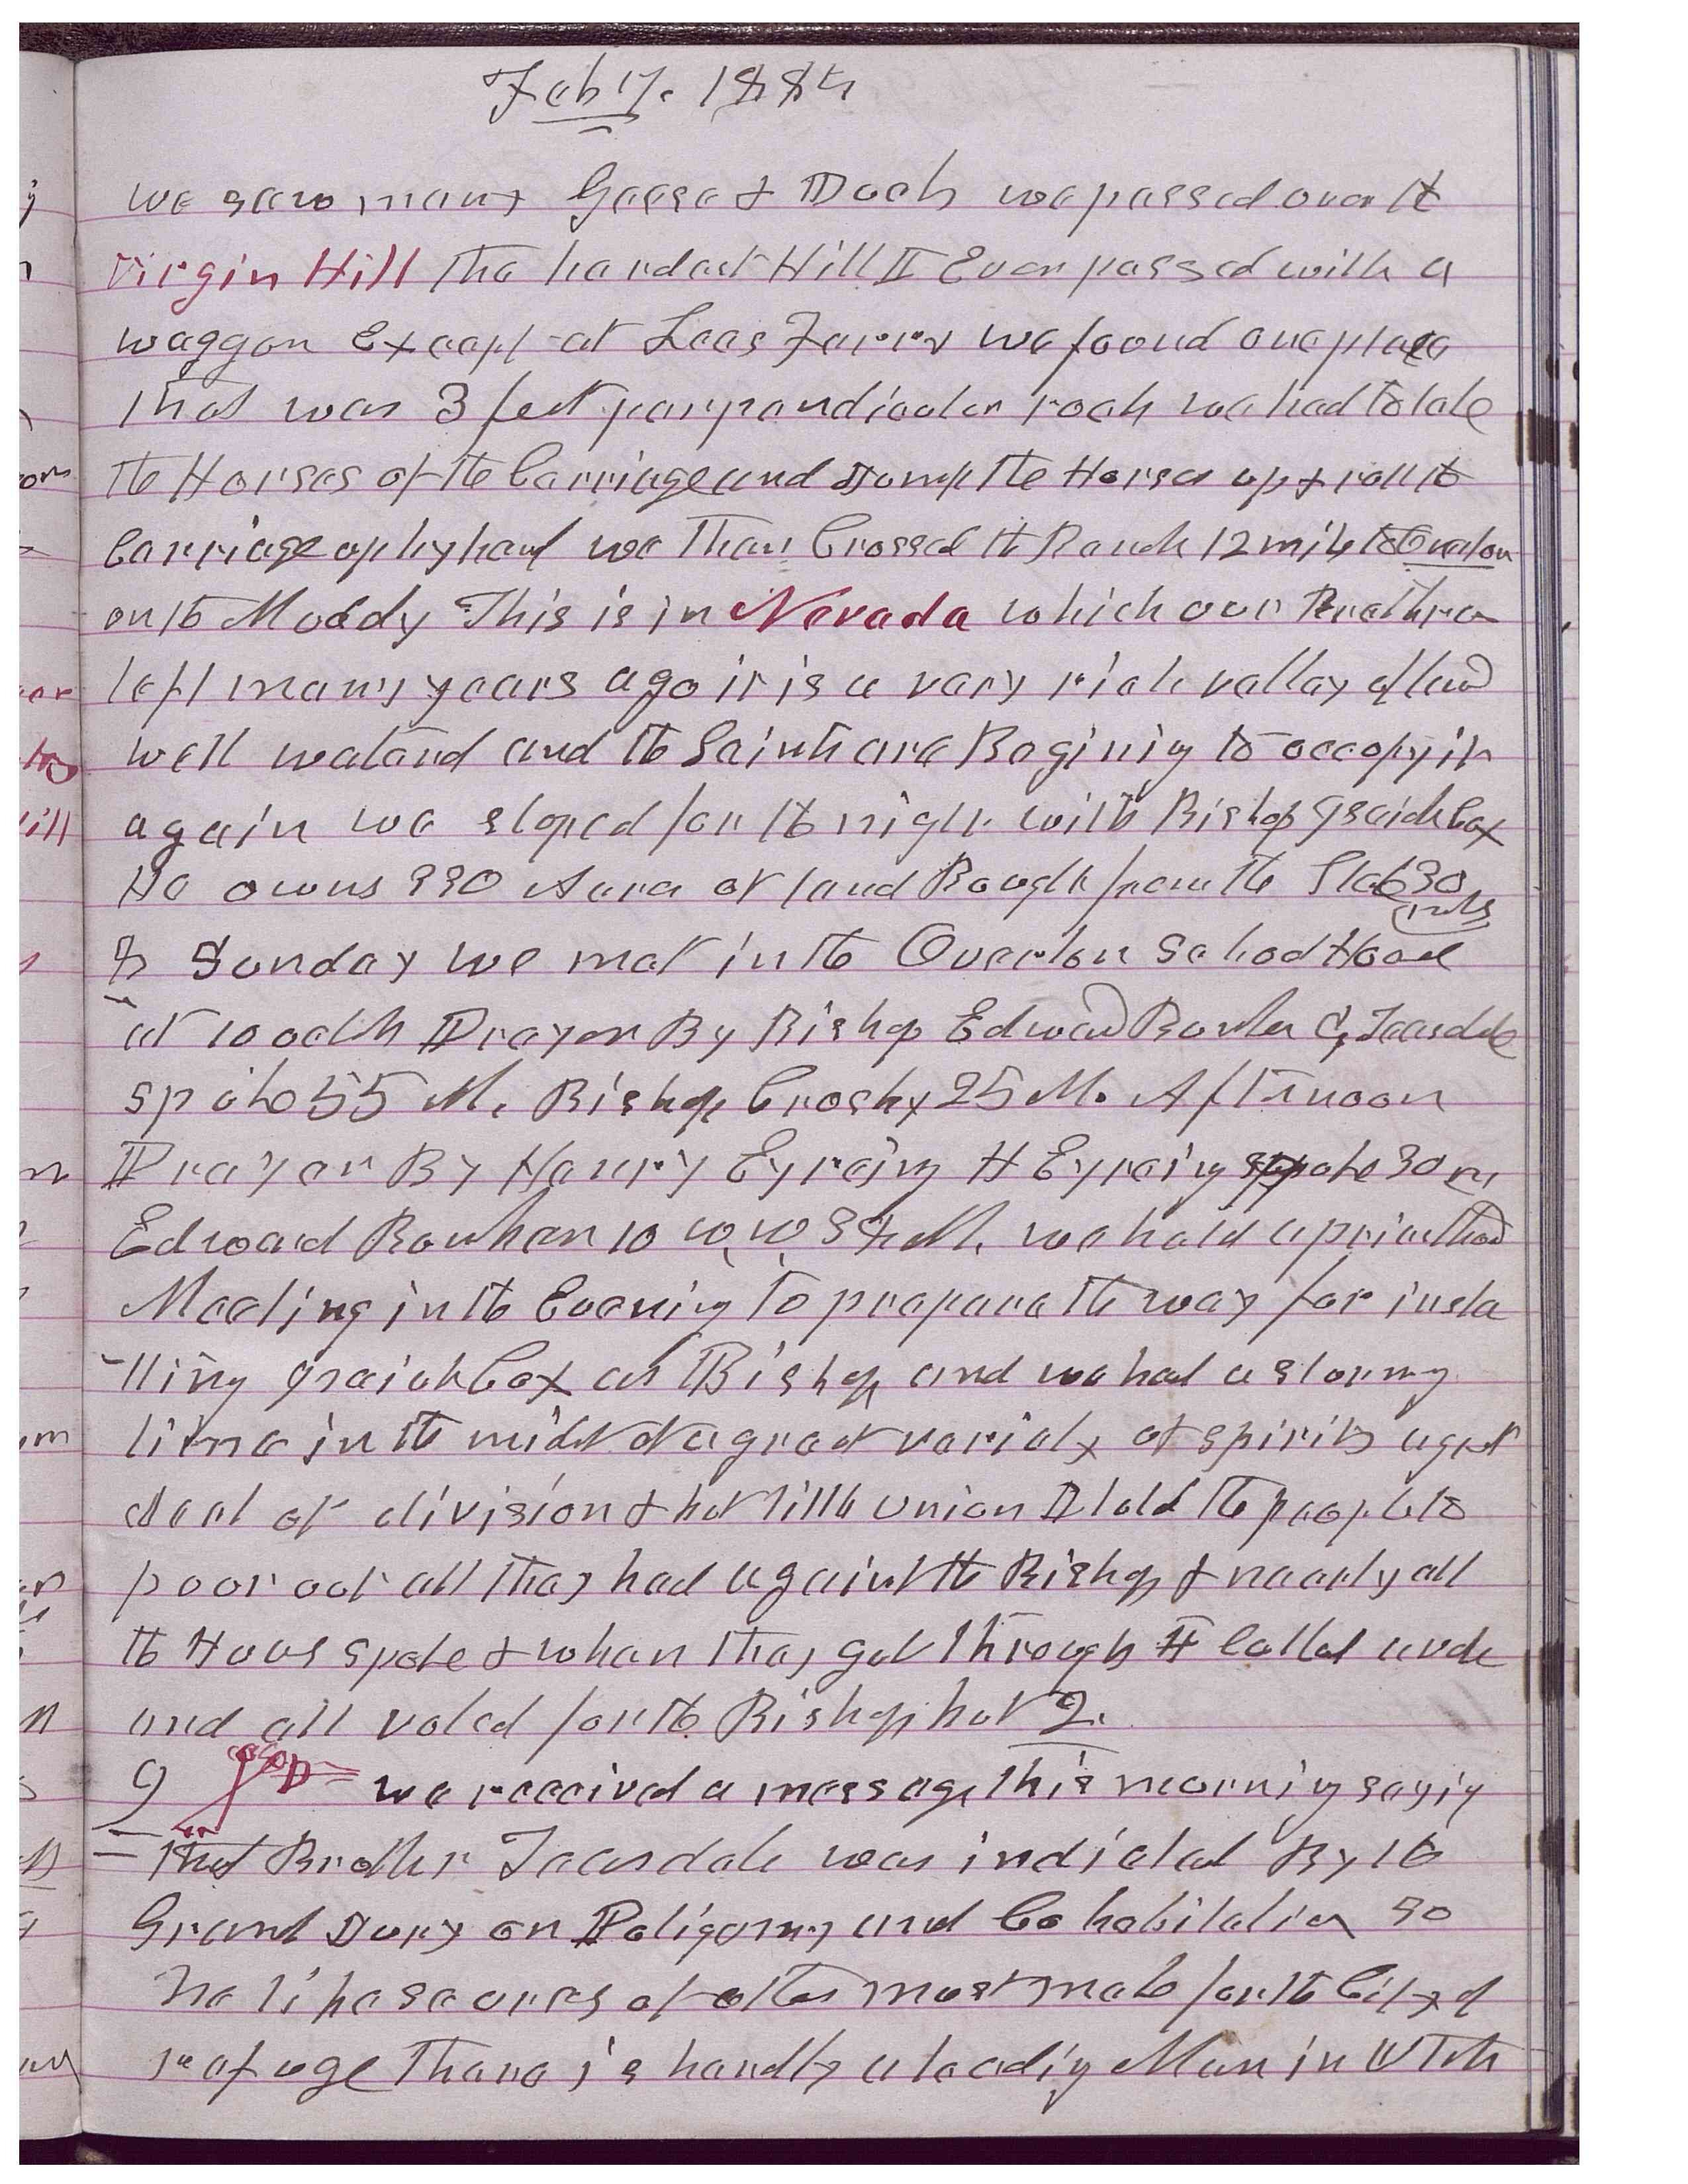 Feb 7. 1885
we saw many Geese & Duck we passed over the
Virgin Hill The hardest Hill I Ever passed with a
waggon Except at Lees Farry we found one place
that was 3 feet perpendicular rock we had to take
the Horses of the Carriage and Jump the Horses up & roll the
Carriage up by hand we then Crossed the Ranch 12 mile to Overton
on the Moddy This is in Nevada which our Brethren
left many years ago it is a very rich valley of land
well watered and the Saints are Begining to occopy it
again we stoped for the night with Bishop Isaiah Cox
He owns 330 Acres of land Bought from the State 30
miles
8 Sunday we met in the Overton School House
at 10 oclok Prayer By Bishop Edward Bunker G, Teasdale
spoke 55 M. Bishop Crosby 25 M. Afternoon
Prayer By Henry Eyreing H Eyreing spoke 30 m
Edward Bunker 10 W, W, M. we held a priesthood
Meeting in the Evening to prepare the way for insta
-lling Isaiah Cox as Bishop and we had a stormy
time in the midst of a great variety of spirits a great
deal of division & but little union I told the people to
poor out all they had against the Bishop & nearly all
the House spoke & when they got through I called a vote
and all voted for the Bishop but 2.
9 we received a message this morning saying
that Brother Teasdale was indicted By the
Grand Jury on Poligamy and Cohabitation so
he like scores of others must make for the City of
refuge There is hardly a leading Man in Utah